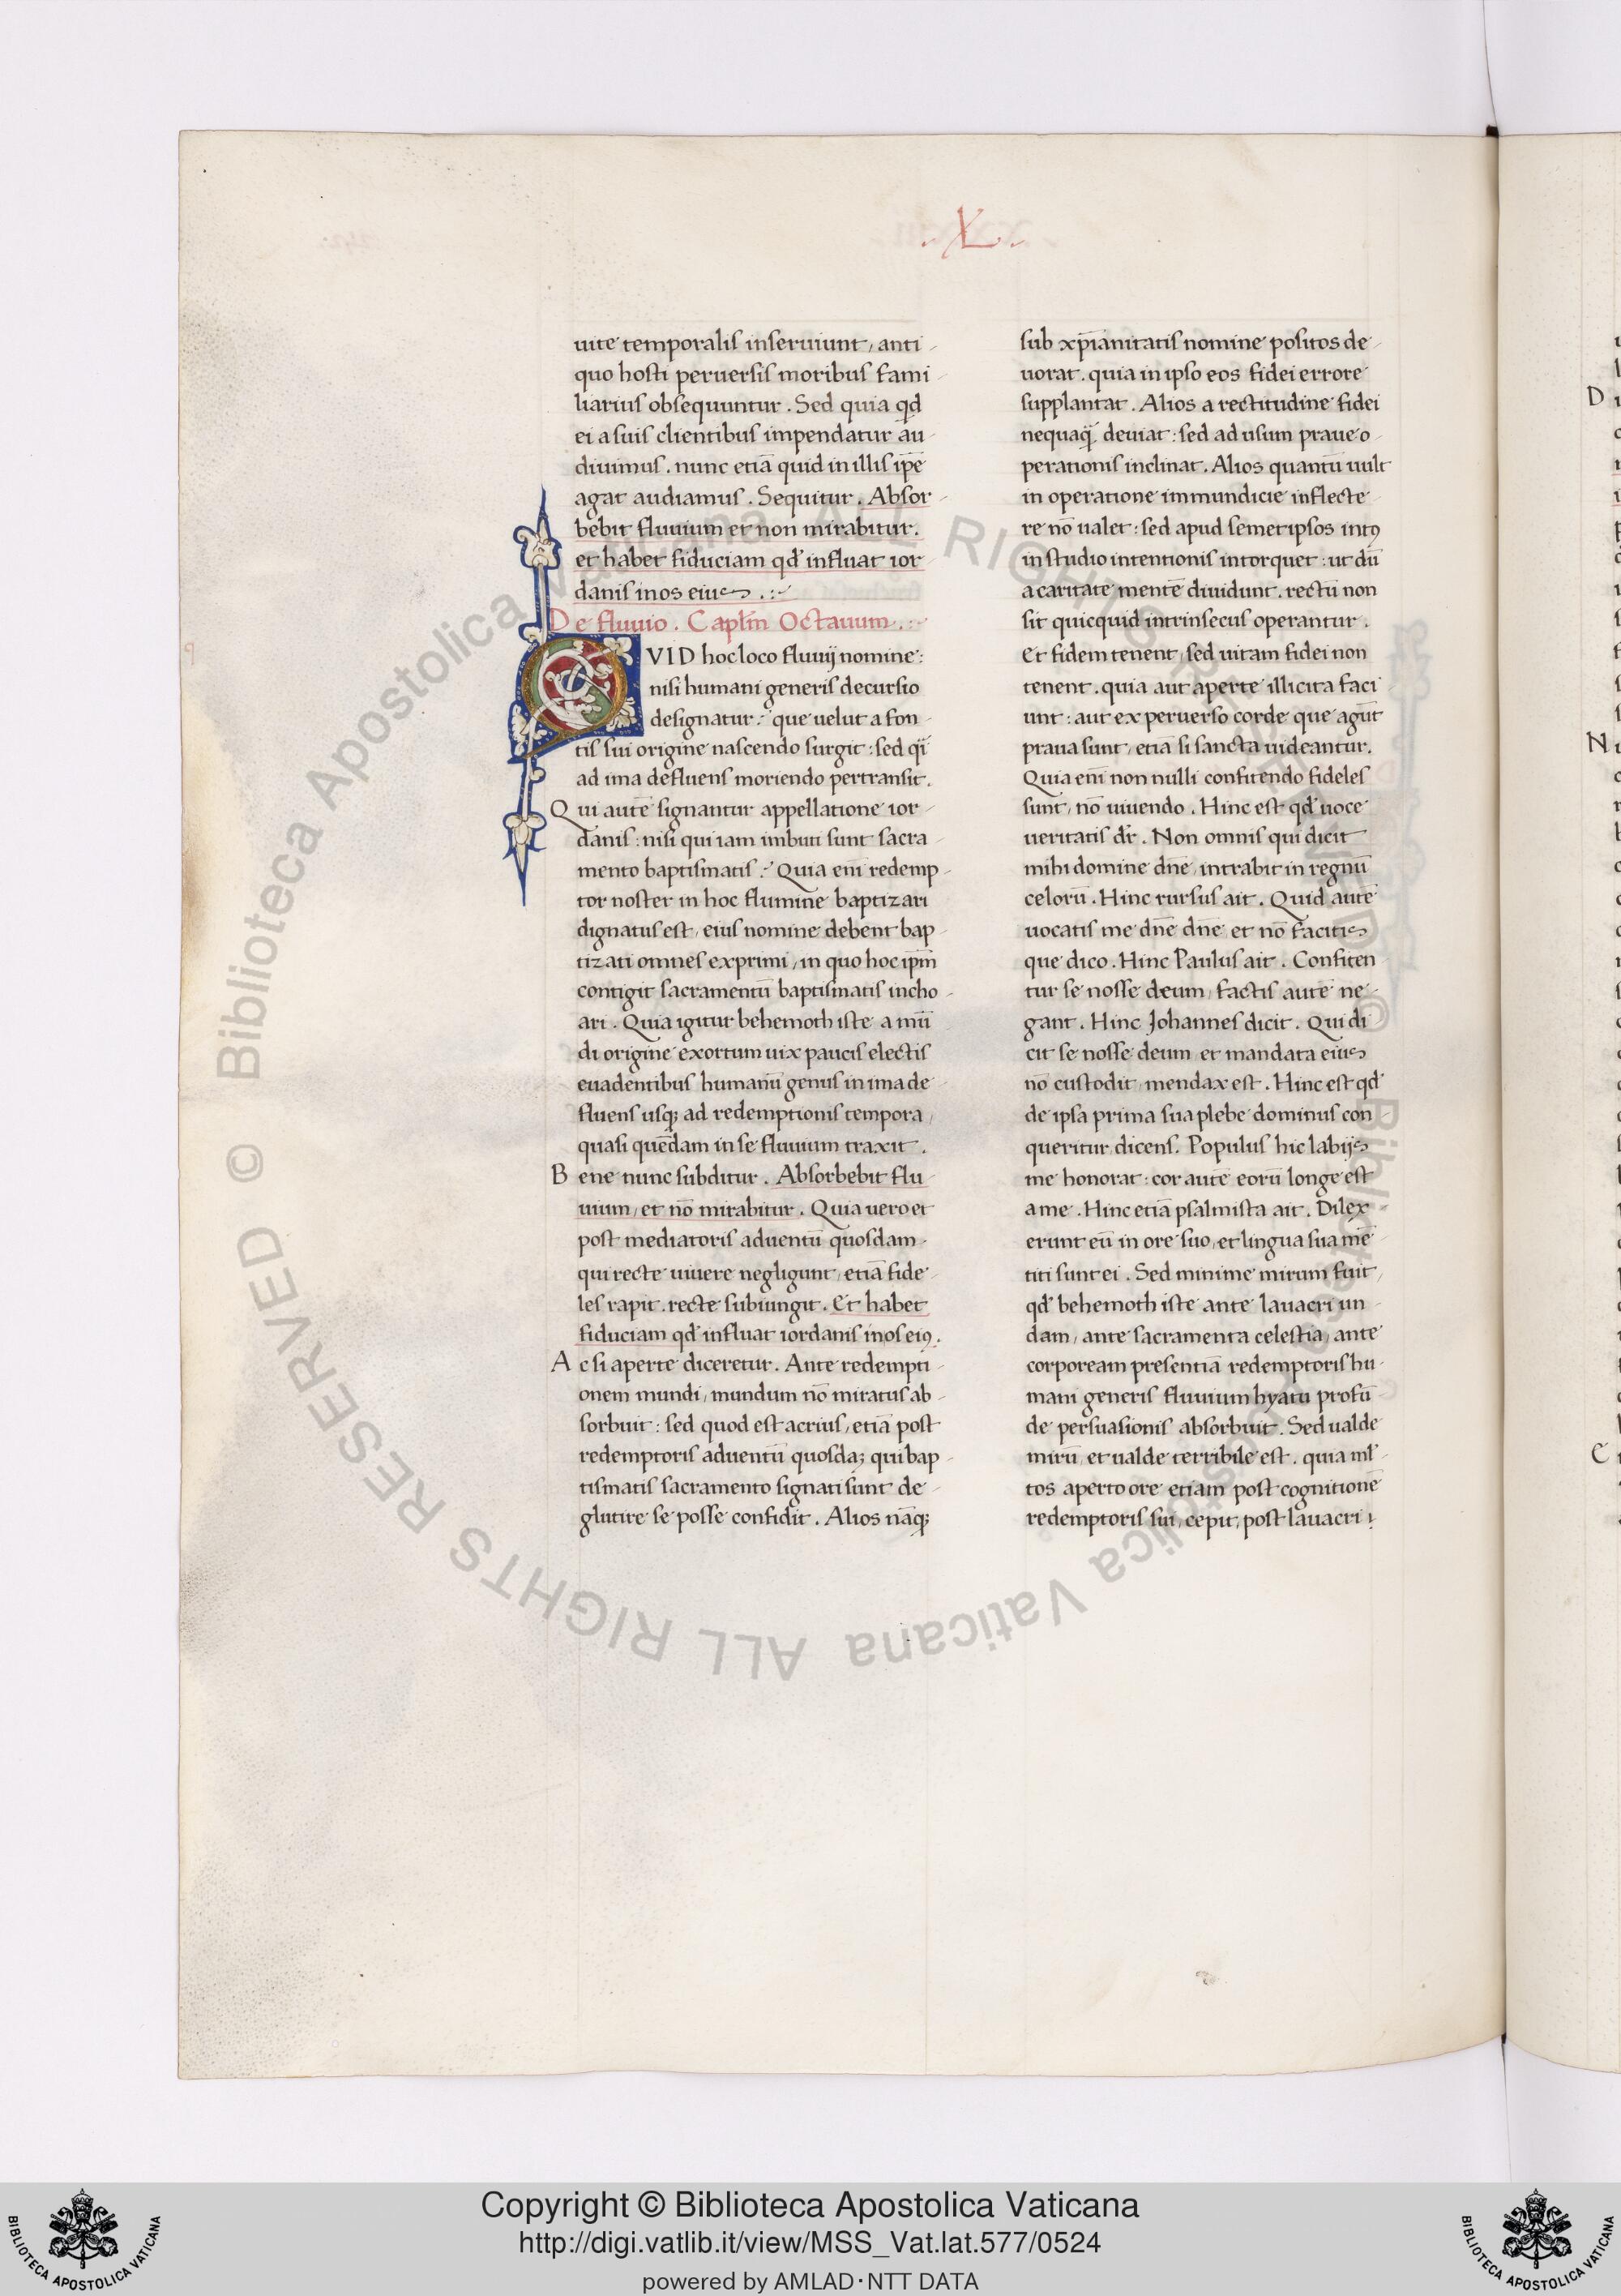 .X.
uite temporalis inseruiunt, anti-
quo hosti peruersis moribus fami-
liarius obsequuntur. Sed quia qd
ei a suis clientibus impendatur au-
diuimus. nunc etiā quid in illis ip̄e
agat audiamus. Sequitur. Absor-
bebit fluuium et non mirabitur.
et habet fiduciam qd' influat ior-
danis in os eius.
De fluuio. Capl̄m Octauum.
QVID hoc loco fluuij nomine:
nisi humani generis decursio
designatur: que uelut a fon-
tis sui origine nascendo surgit: sed q̄i
ad ima defluens moriendo pertransit.
Qui autē signantur appellatione ior-
danis: nisi qui iam imbuti sunt sacra
mento baptismatis? Quia eni̅ redemp-
tor noster in hoc flumine baptizari
dignatus est, eius nomine debent bap-
tizati omnes exprimi, in quo hoc ip̄m
contigit sacramentū baptismatis incho-
ari. Quia igitur behemoth iste a mū
di origine exortum uix paucis electis
euadentibus humanū genus in ima de-
fluens usq; ad redemptionis tempora,
quasi quēdam in se fluuium traxit.
Bene nunc subditur. Absorbebit flu-
uium, et nō mirabitur. Quia uero et
post mediatoris aduentū quosdam
qui recte uiuere negligunt, etiā fide-
les rapit. recte subiungit. Et habet
fiduciam qd' influat iordanis in os ei9.
Ac si aperte diceretur. Ante redempti-
onem mundi, mundum nō miratus ab-
sorbuit: sed quod est acrius, etiā post
redemptoris aduentū quosda; qui bap-
tismatis sacramento signati sunt de-
glutire se posse confidit. Alios nāq;
sub xp̄ianitatis nomine positos de-
uorat. quia in ipso eos fidei errore
supplantat. Alios a rectitudine fidei
nequaq̄ deuiat: sed ad usum praue o-
perationis inclinat. Alios quantū uult
in operatione immundicie inflecte-
re nō ualet: sed apud semetipsos int9
in studio intentionis intorquet: ut dū
a caritate mentē diuidunt. rectū non
sit quicquid intrinsecus operantur.
Et fidem tenent, sed uitam fidei non
tenent. quia aut aperte illicita faci-
unt: aut ex peruerso corde que agūt
praua sunt, etiā si sancta uideantur.
Quia eni̅ non nulli confitendo fideles
sunt, nō uiuendo. Hinc est qd' uoce
ueritatis dr̄. Non omnis qui dicit
mihi domine dn̄e, intrabit in regnū
celorū. Hinc rursus ait. Quid autē
uocatis me dn̄e dn̄e et nō facitis
que dico. Hinc Paulus ait. Confiten
tur se nosse deum, factis autē ne-
gant. Hinc Johannes dicit. Qui di
cit se nosse deum et mandata eius
nō custodit, mendax est. Hinc est qd'
de ipsa prima sua plebe dominus con-
queritur dicens. Populus hic labijs
me honorat: cor autē eorū longe est
a me. Hinc etiā psalmista ait. Dilex-
erunt eū in ore suo, et lingua sua mē-
titi sunt ei. Sed minime mirum fuit,
qd' behemoth iste ante lauacri un-
dam, ante sacramenta celestia, ante
corpoream presentiā redemptoris hu-
mani generis fluuium hyatu profū
de persuasionis absorbuit. Sed ualde
mirū, et ualde terribile est. quia ml'-
tos aperto ore etiam post cognitionē
redemptoris sui, cepit, post lauacri
Copyright © Biblioteca Apostolica Vaticana
http://digi.vatlib.it/view/MSS_Vat.lat.577/0524
powered by AMLAD·NTT DATA
BIBLIOTECA APOSTOLICA VATICANA
BIBLIOTECA APOSTOLICA VATICANA
© Biblioteca Apostolica Vaticana ALL RIGHTS RESERVED © Biblioteca Apostolica Vaticana ALL RIGHTS RESERVED